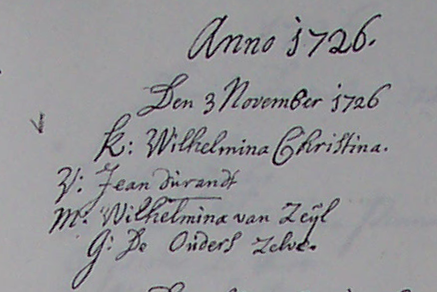 Anno 1726.
Den 3 November 1726
K: Wilhelmina Christina.
V: Jean durandt
M: Wilhelmina van Zeijl
G: De Ouders Zelve.